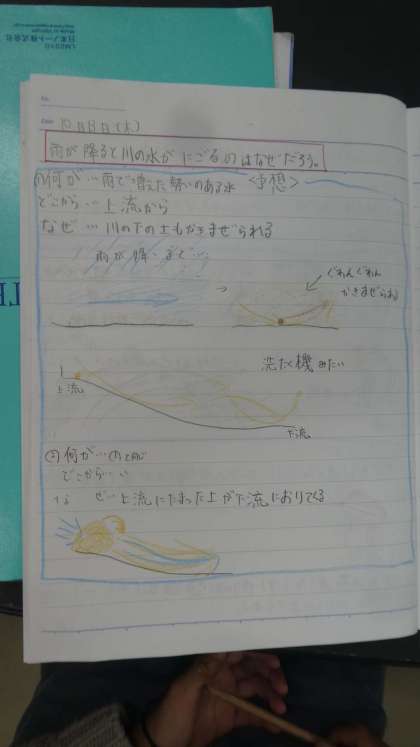 LM205G
日本ノート株式会社
Made in Vietnam
No.
Date
雨が降ると川の水がにごるのはなぜだろう。
<予想>
①何が…雨で増えた勢いのある水
どこから…上流から
なぜ…川の下の土もかきまぜられる
雨が降るまで…
→
ぐわんぐわん
かきまぜられる
洗たく機みたい
上流
下流
②何が…
どこから…
なぜ…上流にたまった土が下流におりてくる